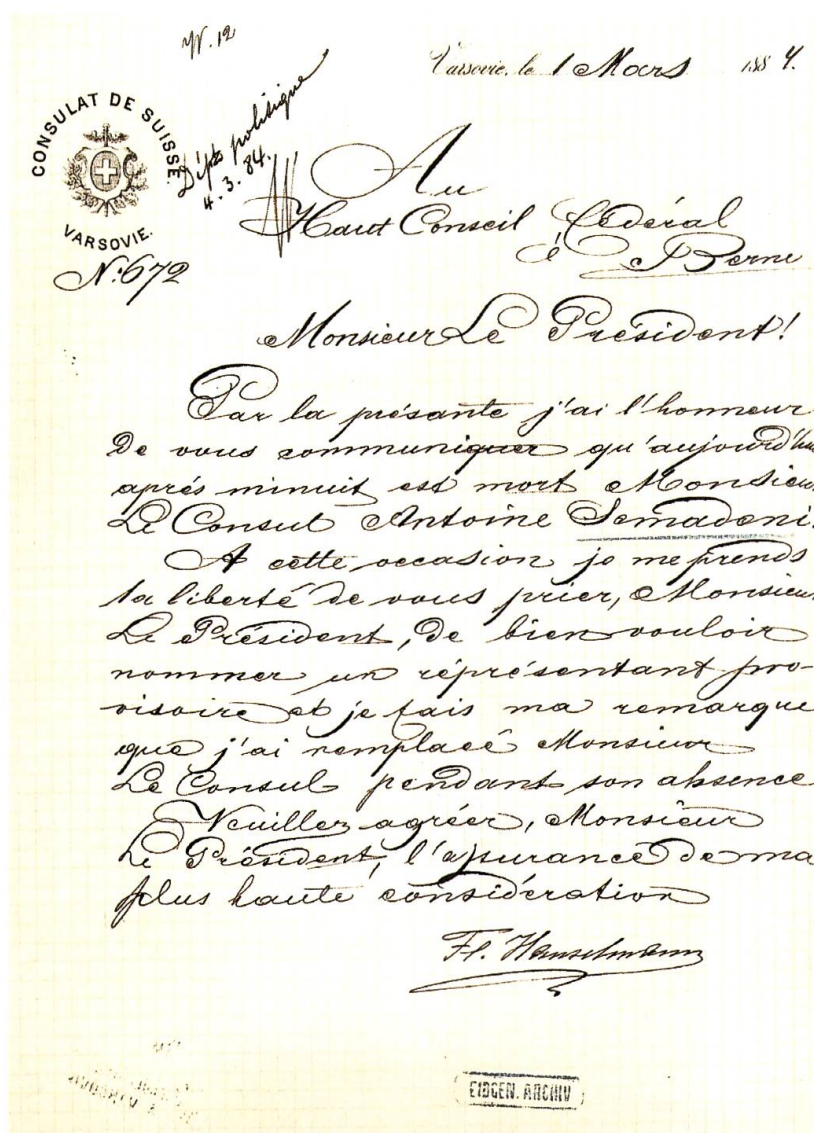 Nr. 12
Varsovie, le 1 Mars 1884.
CONSULAT DE SUISSE.
VARSOVIE.
Dépt politique
4.3.84.
Au
Haut Conseil fédéral
à Berne
No: 672
Monsieur Le Président!
Par la présante j'ai l'honneur
De vous communiquer qu'aujourd'hui
aprés minuit est mort Monsieur
Le Consul Antoine Semadeni.
A cette occasion je me prends
la liberté de vous prier, Monsieur
Le Président, De bien vouloir
nommer un réprésentant pro-
visoire et je fais ma remarque
que j'ai remplacé Monsieur
Le Consul pendant son absence
Veuillez agréer, Monsieur
Le Président, l'assurance De ma
plus haute considération
Fl. Hanselmann
EIDGEN. ARCHIV